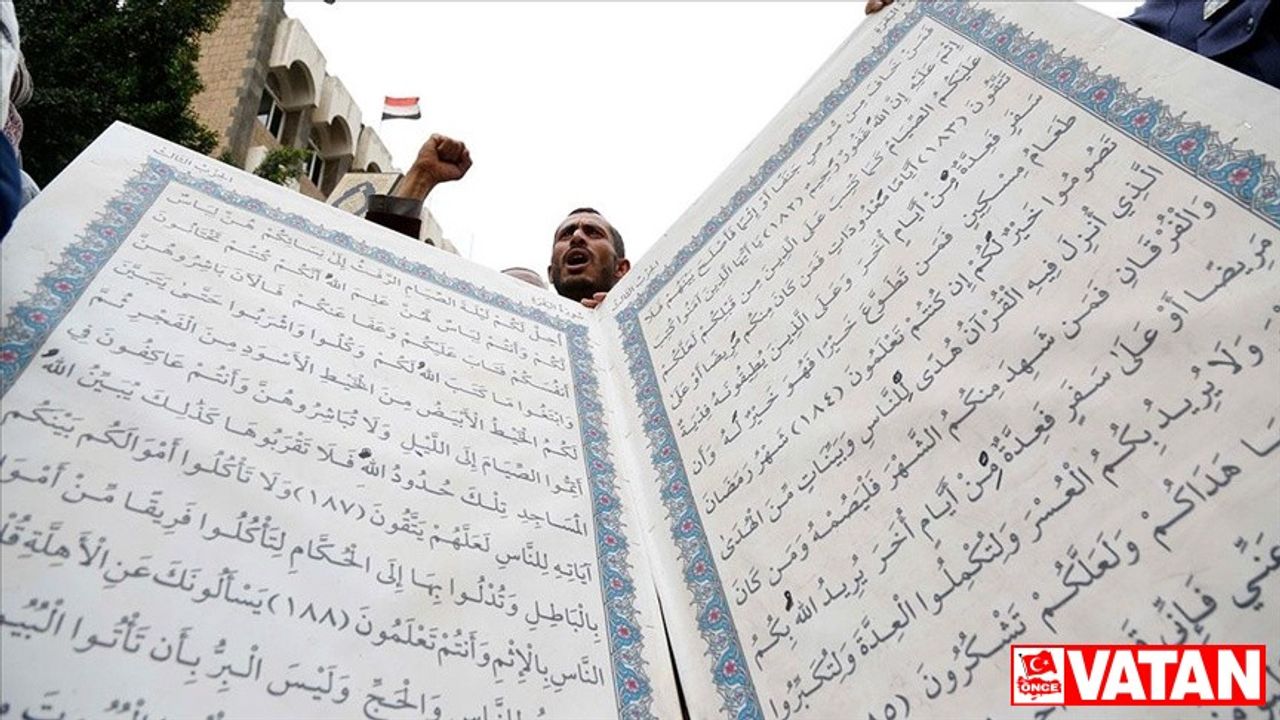 فَمَنْ خَافَ مِنْ مُوصٍ جَنَفًا أَوْ إِثْمًا فَأَصْلَحَ بَيْنَهُمْ فَلَا
إِثْمَ عَلَيْهِ إِنَّ اللهَ غَفُورٌ رَحِيمٌ (١٨٢) يَا أَيُّهَا الَّذِينَ آمَنُوا كُتِبَ
عَلَيْكُمُ الصِّيَامُ كَمَا كُتِبَ عَلَى الَّذِينَ مِنْ قَبْلِكُمْ لَعَلَّكُمْ
تَتَّقُونَ (١٨٣) أَيَّامًا مَعْدُودَاتٍ فَمَنْ كَانَ مِنْكُمْ مَرِيضًا أَوْ عَلَى
سَفَرٍ فَعِدَّةٌ مِّنْ أَيَّامٍ أُخَرَ وَعَلَى الَّذِينَ يُطِيقُونَهُ فِدْيَةٌ
طَعَامُ مِسْكِينٍ فَمَن تَطَوَّعَ خَيْرًا فَهُوَ خَيْرٌ لَّهُ وَأَن
تَصُومُوا خَيْرٌ لَكُمْ إِن كُنْتُمْ تَعْلَمُونَ (١٨٤) شَهْرُ رَمَضَانَ
الَّذِي أُنْزِلَ فِيهِ الْقُرْآنُ هُدًى لِلنَّاسِ وَبَيِّنَاتٍ مِّنَ الْهُدَىٰ
وَالْفُرْقَانِ فَمَن شَهِدَ مِنكُمُ الشَّهْرَ فَلْيَصُمْهُ وَمَن كَانَ
مَرِيضًا أَوْ عَلَىٰ سَفَرٍ فَعِدَّةٌ مِّنْ أَيَّامٍ أُخَرَ يُرِيدُ اللهُ بِكُمُ
وَلَا يُرِيدُ بِكُمُ الْعُسْرَ وَلِتُكْمِلُوا الْعِدَّةَ وَلِتُكَبِّرُوا
هَدَاكُمْ وَلَعَلَّكُمْ تَشْكُرُونَ
عَنِّي فَإِنِّي
الحزب الثالث
أُحِلَّ لَكُمْ لَيْلَةَ الصِّيَامِ الرَّفَثُ إِلَى نِسَائِكُمْ هُنَّ لِبَاسٌ
لَكُمْ وَأَنْتُمْ لِبَاسٌ لَهُنَّ عَلِمَ اللهُ أَنَّكُمْ كُنْتُمْ تَخْتَانُونَ
أَنْفُسَكُمْ فَتَابَ عَلَيْكُمْ وَعَفَا عَنْكُمْ فَالْآنَ بَاشِرُوهُنَّ
وَابْتَغُوا مَا كَتَبَ اللهُ لَكُمْ وَكُلُوا وَاشْرَبُوا حَتَّىٰ يَتَبَيَّنَ
لَكُمُ الْخَيْطُ الْأَبْيَضُ مِنَ الْخَيْطِ الْأَسْوَدِ مِنَ الْفَجْرِ ثُمَّ
أَتِمُّوا الصِّيَامَ إِلَى اللَّيْلِ وَلَا تُبَاشِرُوهُنَّ وَأَنْتُمْ عَاكِفُونَ فِي
الْمَسَاجِدِ تِلْكَ حُدُودُ اللهِ فَلَا تَقْرَبُوهَا كَذَٰلِكَ يُبَيِّنُ اللهُ
آيَاتِهِ لِلنَّاسِ لَعَلَّهُمْ يَتَّقُونَ (١٨٧) وَلَا تَأْكُلُوا أَمْوَالَكُم بَيْنَكُم
بِالْبَاطِلِ وَتُدْلُوا بِهَا إِلَى الْحُكَّامِ لِتَأْكُلُوا فَرِيقًا مِّنْ أَمْوَالِ
النَّاسِ بِالْإِثْمِ وَأَنتُمْ تَعْلَمُونَ (١٨٨) يَسْأَلُونَكَ عَنِ الْأَهِلَّةِ قُلْ
لِلنَّاسِ وَالْحَجِّ وَلَيْسَ الْبِرُّ بِأَن تَأْتُوا الْبُيُ
ÖNCE VATAN